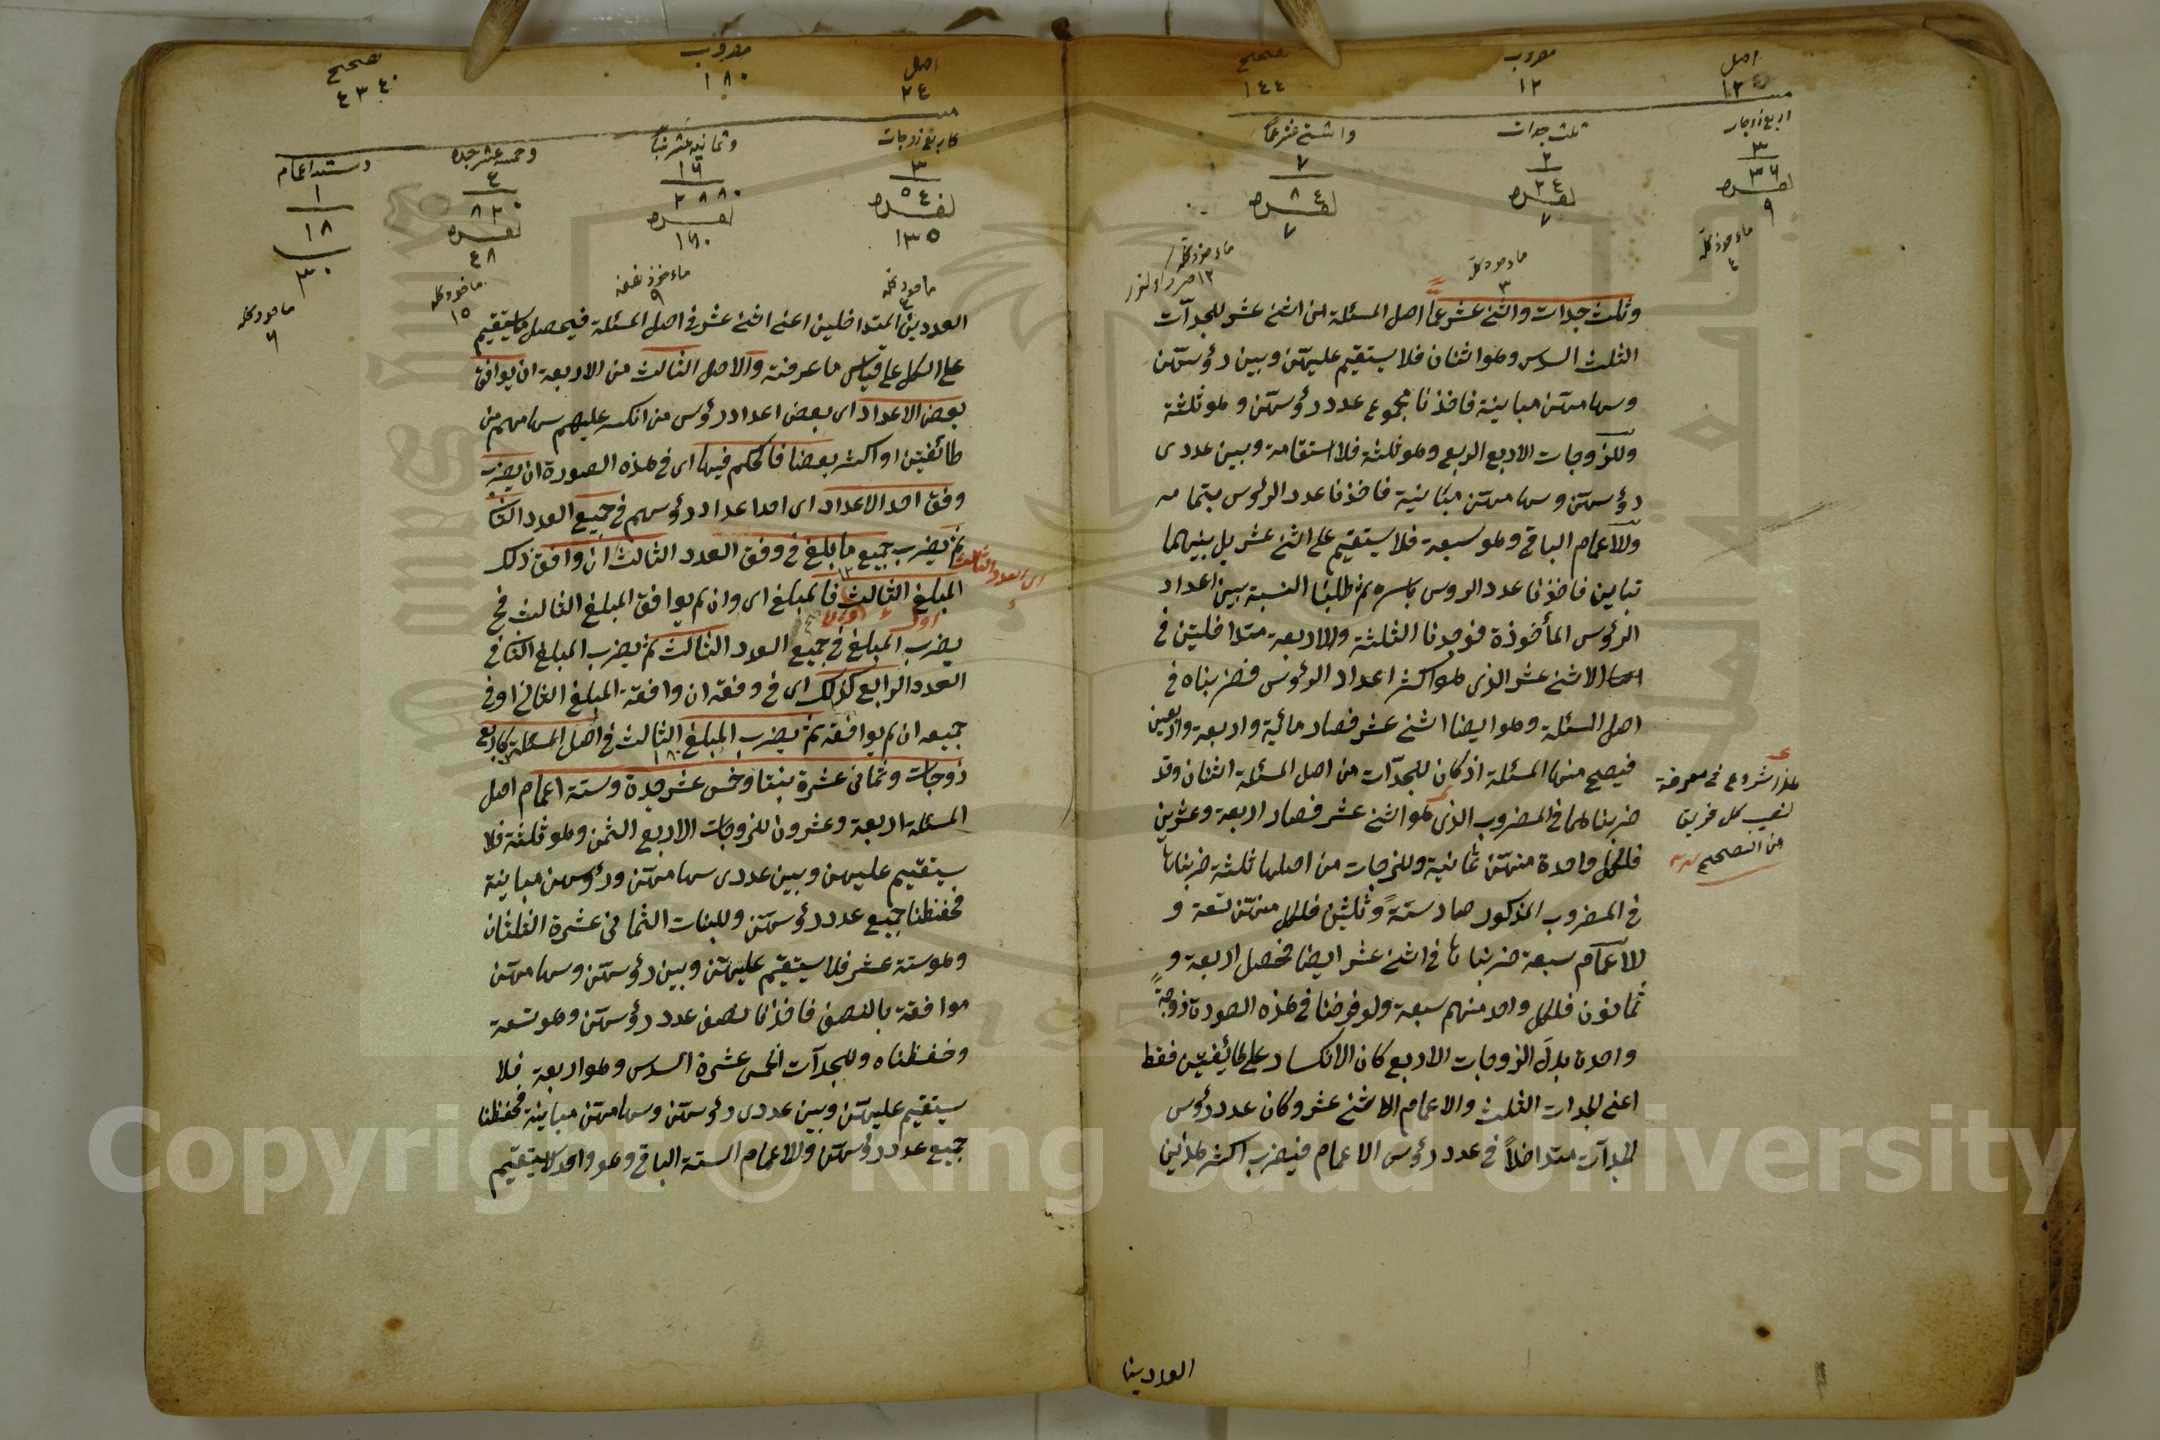 اصل مضروب صحيح
١٢ ١٢ ١٤٤
اربع زوجات ثلث جدات واثنى عشر عما
٣ ٢ ٧
٣٦ ٢٤ ٨٤
لفرد لفرد لفرد
٩ ٧
مأخوذ كله مأخوذ كله مأخوذ كله
٤ ٣ ١٢
وثلث جدات واثنى عشر عما اصل المسئلة من اثنى عشر للجدات
الثلث السدس وهو اثنان فلا يستقيم عليهن وبين رؤسهن
وسهامهن مباينة فاخذنا مجموع عدد رؤسهن وهو ثلثة
وللزوجات الاربع الربع وهو ثلثة فلا استقامة وبين عددى
رؤسهن وسهامهن مباينة فاخذنا عدد الرؤس بتمامه
وللاعمام الباقى وهو سبعة فلا يستقيم على اثنى عشر بل بينهما
تباين فاخذنا عدد الروس باسره ثم طلبنا النسبة بين اعداد
الرؤس المأخوذة فوجدنا الثلثة والاربعة متداخلين فى
الاثنى عشر الذى هو اكثر اعداد الرؤس فضربناه فى
اصل المسئلة وهو ايضا اثنى عشر فصار مائة واربعة واربعين
فيصح منها المسئلة اذ كان للجدات من اصل المسئلة اثنان وقد
ضربناهما فى المضروب الذى هو اثنى عشر فصار اربعة وعشرين
فلكل واحدة منهن ثمانية وللزوجات من اصلها ثلثة ضربناها
فى المضروب المذكور صار ستة وثلثين فلكل منهن تسعة و
للاعمام سبعة ضربناها فى اثنى عشر ايضا فحصل اربعة و
ثمانون فلكل واحد منهم سبعة ولو فرضنا فى هذه الصورة زوجة
واحدة بدل الزوجات الاربع كان الانكسار على طائفتين فقط
اعنى الجدات الثلث والاعمام الاثنى عشر وكان عدد رؤس
الجدات متداخلا فى عدد رؤس الاعمام فيضرب اكثر هذين
هذا شروع فى معرفة
نصيب كل فريق
من التصحيح
العددين
اصل مضروب صحيح
٢٤ ١٨٠ ٤٣٢٠
كاربع زوجات وثمانية عشر بنتا وخمسة عشر جدة وستة اعمام
٣ ١٦ ٤ ١
٥٤٠ ٢٨٨٠ ٧٢٠ ١٨٠
لفرد لفرد لفرد
١٣٥ ١٦٠ ٤٨ ٣٠
مأخوذ كله مأخوذ نصفه مأخوذ كله مأخوذ كله
٤ ٩ ١٥ ٦
العددين المتداخلين اعنى اثنى عشر فى اصل المسئلة فيحصل ما يستقيم
على الكل على قياس ما عرفته والاصل الثالث من الاربعة ان يوافق
بعض الاعداد اى بعض اعداد رؤس من انكسر عليهم سهامهم من
طائفتين او اكثر بعضا فالحكم فيها اى فى هذه الصورة ان يضرب
وفق احد الاعداد اى احد اعداد رؤسهم فى جميع العدد الثانى
ثم يضرب جميع ما بلغ فى وفق العدد الثالث ان وافق ذلك
المبلغ الثالث فالمبلغ اى وان لم يوافق المبلغ الثالث فح
يضرب المبلغ فى جميع العدد الثالث ثم يضرب المبلغ الثانى فى
العدد الرابع كذلك اى فى وفقه ان وافقه المبلغ الثانى او فى
جميعه ان لم يوافقه ثم يضرب المبلغ الثالث فى اصل المسئلة كاربع
زوجات وثمانى عشرة بنتا وخمس عشر جدة وستة اعمام اصل
المسئلة اربعة وعشرون للزوجات الاربع الثمن وهو ثلثة فلا
يستقيم عليهن وبين عددى سهامهن ورؤسهن مباينة
فحفظنا جميع عدد رؤسهن وللبنات الثمانى عشرة الثلثان
وهو ستة عشر فلا يستقيم عليهن وبين رؤسهن وسهامهن
موافقة بالنصف فاخذنا نصف عدد رؤسهن وهو تسعة
وحفظناه وللجدات الخمس عشرة السدس وهو اربعة فلا
يستقيم عليهن وبين عددى رؤسهن وسهامهن مباينة فحفظنا
جميع عدد رؤسهن وللاعمام الستة الباقى وهو واحد لا يستقيم
اى العدد الثالث
Copyright © King Saud University